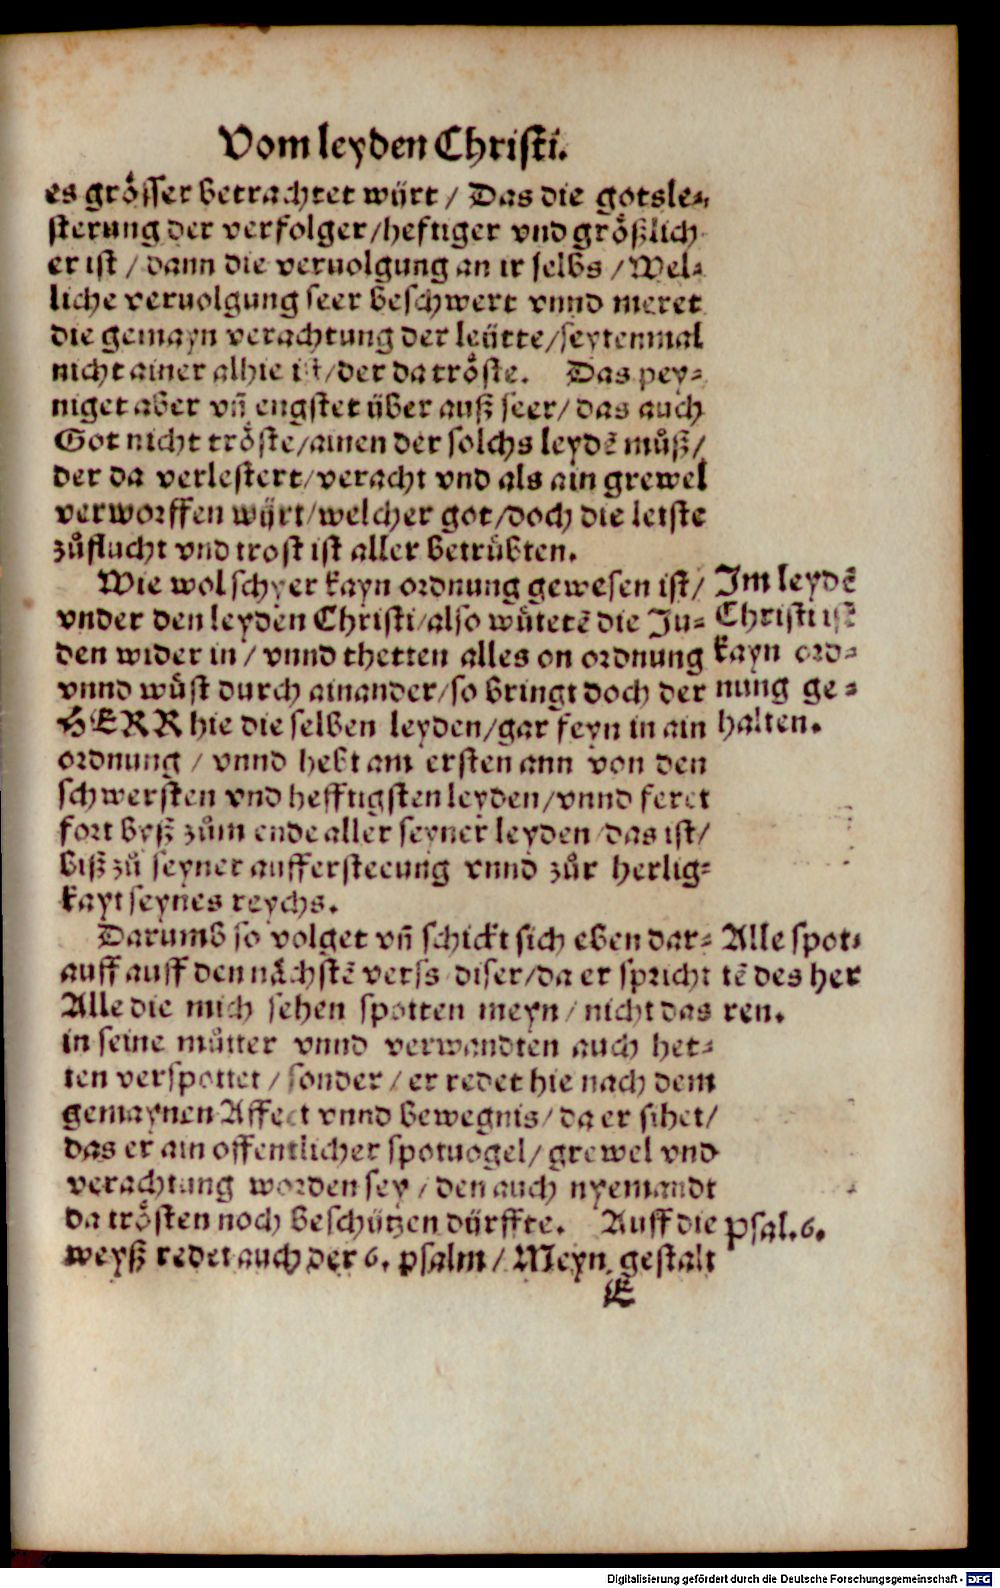 Vom leyden Christi.
es grösser betrachtet wÿrt / Das die gotsle-
sterung der verfolger/hefftiger vnd größlich
er ist / dann die veruolgung an ir selbs / Wel-
liche veruolgung seer beschwert vnnd meret
die gemayn verachtung der leÿtte/seytenmal
nicht ainer alhie ist/der da tröste. Das pey-
niget aber vñ engstet über auß seer/ das auch
Got nicht tröste/ainen der solchs leydē můß/
der da verlestert/veracht vnd als ain grewel
verworffen wÿrt/welcher got/doch die letste
zůflucht vnd trost ist aller betrübten.
Wie wol schyer kayn ordnung gewesen ist/
vnder den leyden Christi/also wůtetē die Ju-
den wider in / vnnd thetten alles on ordnung
vnnd wůst durch ainander/so bringt doch der
HERR hie die selben leyden/gar feyn in ain
ordnung / vnnd hebt am ersten ann von den
schwersten vnd hefftigsten leyden/vnnd feret
fort byß zům ende aller seyner leyden/das ist/
biß zů seyner auffersteeung vnnd zůr herlig-
kayt seynes reychs.
Im leydē
Christi ist
kayn ord-
nung ge-
halten.
Darumb so volget vñ schickt sich eben dar-
auff auff den nächstē verss diser/da er spricht
Alle die mich sehen spotten meyn / nicht das
in seine můtter vnnd verwandten auch het-
ten verspottet / sonder / er redet hie nach dem
gemaynen Affect vnnd bewegnis/ da er sihet/
das er ain offentlicher spotuogel/ grewel vnd
verachtung worden sey / den auch nyemandt
da trösten noch beschützen dürffte. Auff die
weyß redet auch der 6. psalm / Meyn gestalt
Alle spot-
tē des her
ren.
Psal. 6.
E
Digitalisierung gefördert durch die Deutsche Forschungsgemeinschaft - DFG